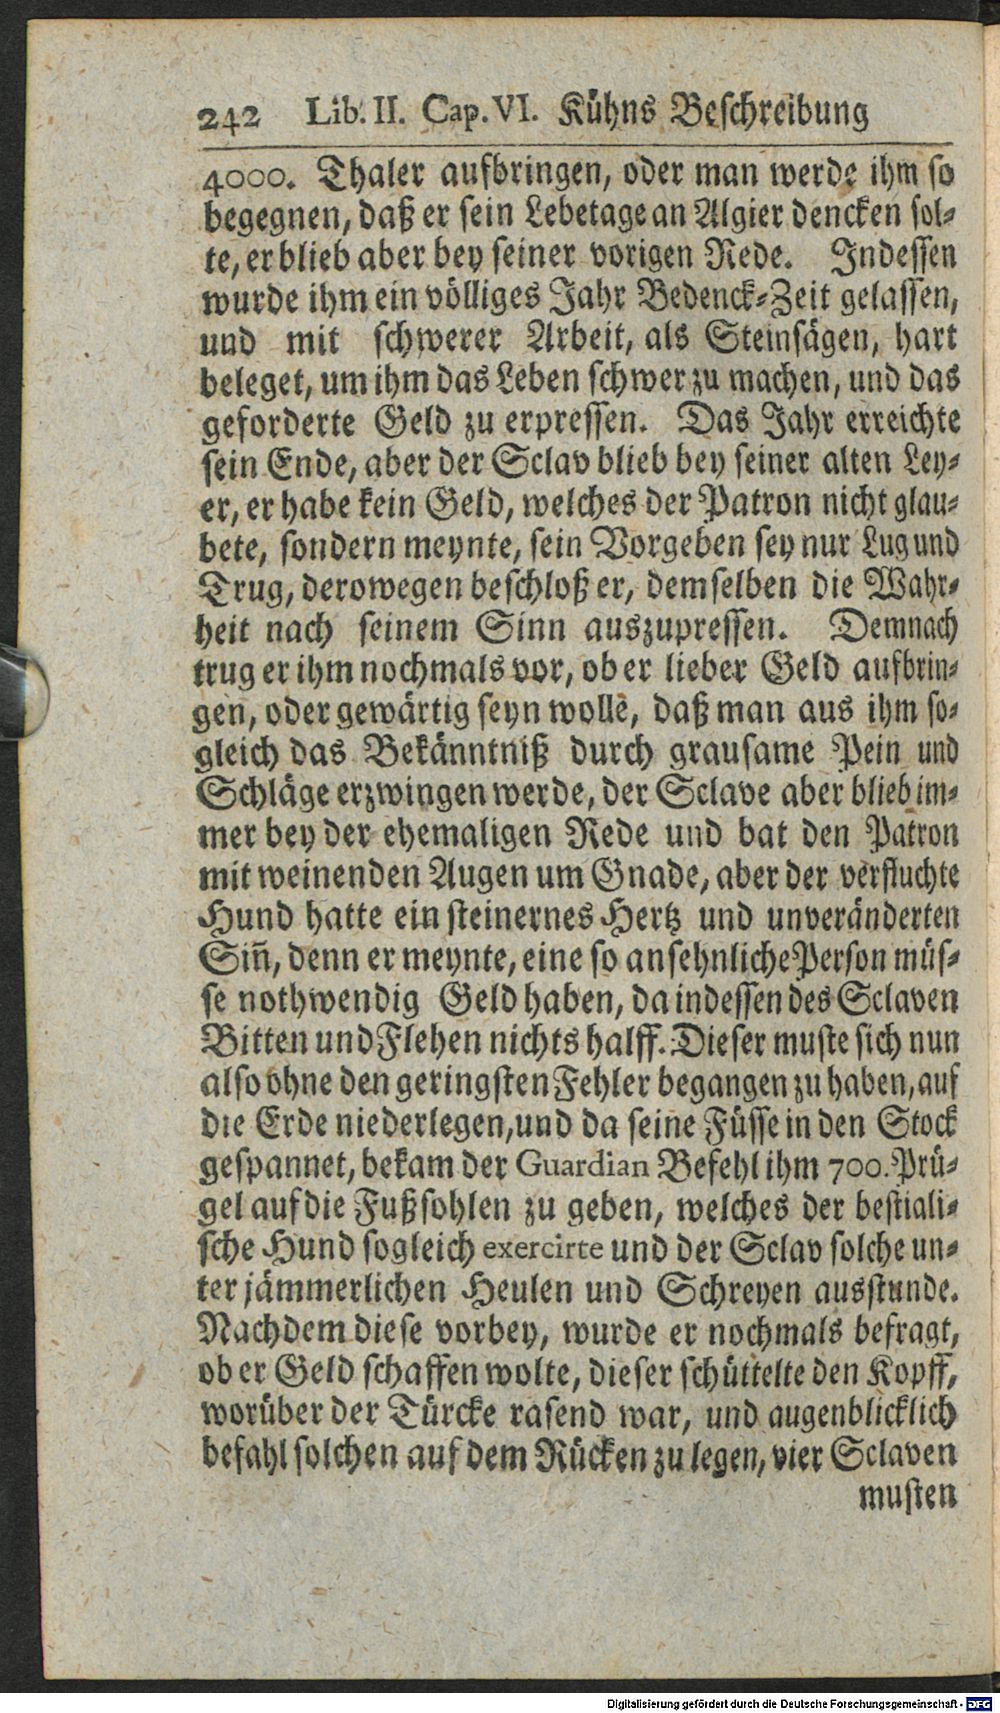 242 Lib. II. Cap. VI. Kühns Beschreibung
4000. Thaler aufbringen, oder man werde ihm so
begegnen, daß er sein Lebetage an Algier dencken sol-
te, er blieb aber bey seiner vorigen Rede. Indessen
wurde ihm ein völliges Jahr Bedenck-Zeit gelassen,
und mit schwerer Arbeit, als Steinsägen, hart
beleget, um ihm das Leben schwer zu machen, und das
geforderte Geld zu erpressen. Das Jahr erreichte
sein Ende, aber der Sclav blieb bey seiner alten Ley-
er, er habe kein Geld, welches der Patron nicht glau-
bete, sondern meynte, sein Vorgeben sey nur Lug und
Trug, derowegen beschloß er, demselben die Wahr-
heit nach seinem Sinn auszupressen. Demnach
trug er ihm nochmals vor, ob er lieber Geld aufbrin-
gen, oder gewärtig seyn wolle, daß man aus ihm so-
gleich das Bekänntniß durch grausame Pein und
Schläge erzwingen werde, der Sclave aber blieb im-
mer bey der ehemaligen Rede und bat den Patron
mit weinenden Augen um Gnade, aber der verfluchte
Hund hatte ein steinernes Hertz und unveränderten
Sin̄, denn er meynte, eine so ansehnliche Person müs-
se nothwendig Geld haben, da indessen des Sclaven
Bitten und Flehen nichts halff. Dieser muste sich nun
also ohne den geringsten Fehler begangen zu haben, auf
die Erde niederlegen, und da seine Füsse in den Stock
gespannet, bekam der Guardian Befehl ihm 700. Prü-
gel auf die Fußsohlen zu geben, welches der bestiali-
sche Hund sogleich exercirte und der Sclav solche un-
ter jämmerlichen Heulen und Schreyen ausstunde.
Nachdem diese vorbey, wurde er nochmals befragt,
ob er Geld schaffen wolte, dieser schüttelte den Kopff,
worüber der Türcke rasend war, und augenblicklich
befahl solchen auf dem Rücken zu legen, vier Sclaven
musten
Digitalisierung gefördert durch die Deutsche Forschungsgemeinschaft - DFG